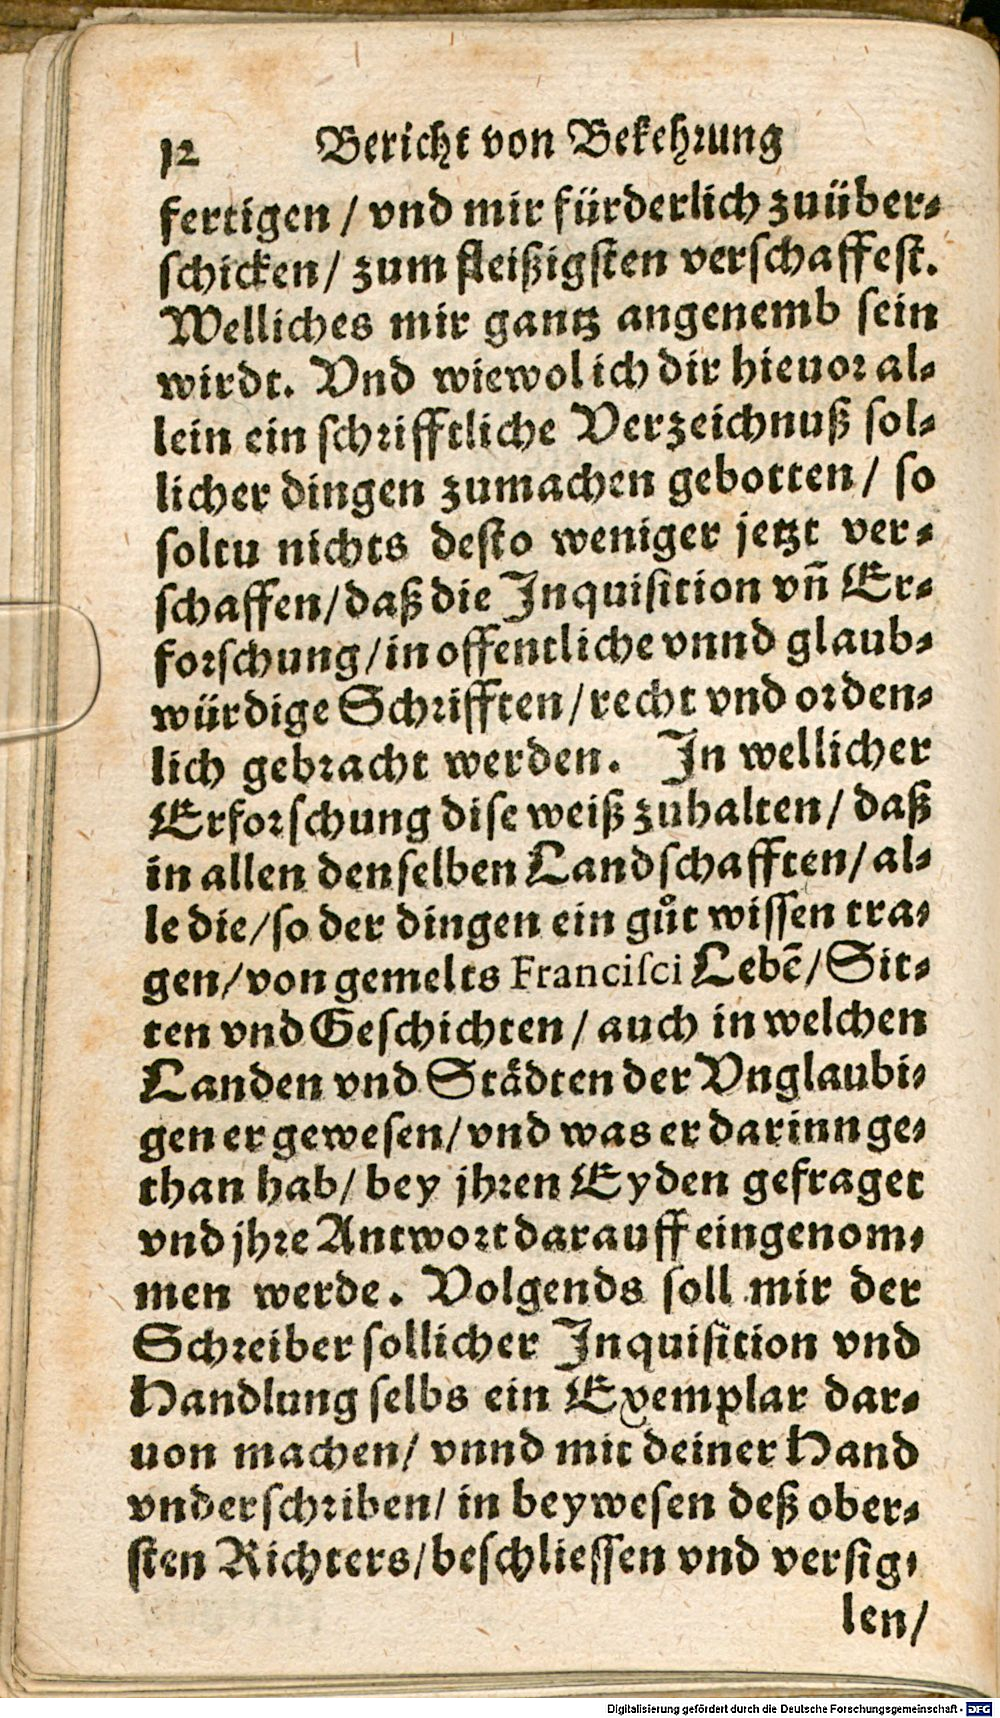 12 Bericht von Bekehrung
fertigen / vnd mir fürderlich zuüber⸗
schicken / zum fleißigsten verschaffest.
Welliches mir gantz angenemb sein
wirdt. Vnd wiewol ich dir hieuor al⸗
lein ein schrifftliche Verzeichnuß sol⸗
licher dingen zumachen gebotten / so
soltu nichts desto weniger jetzt ver⸗
schaffen / daß die Inquisition vñ Er⸗
forschung / in offentliche vnnd glaub⸗
würdige Schrifften / recht vnd orden⸗
lich gebracht werden. In wellicher
Erforschung dise weiß zuhalten / daß
in allen denselben Landschafften / al⸗
le die / so der dingen ein gůt wissen tra⸗
gen / von gemelts Francisci Lebẽ / Sit⸗
ten vnd Geschichten / auch in welchen
Landen vnd Stådten der Vnglaubi⸗
gen er gewesen / vnd was er darinn ge⸗
than hab / bey jhren Eyden gefraget
vnd jhre Antwort darauff eingenom⸗
men werde. Volgends soll mir der
Schreiber sollicher Inquisition vnd
Handlung selbs ein Exemplar dar⸗
uon machen / vnnd mit deiner Hand
vnderschriben / in beywesen deß ober⸗
sten Richters / beschliessen vnd versig⸗
len /
Digitalisierung gefördert durch die Deutsche Forschungsgemeinschaft - DFG